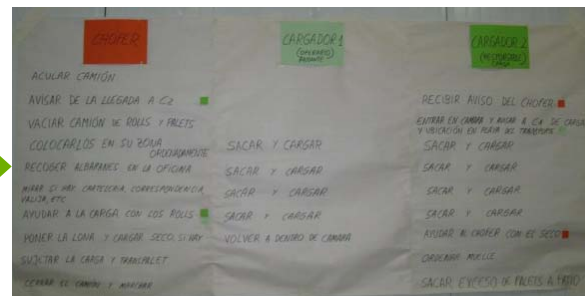 CHOFER
ACULAR CAMIÓN
AVISAR DE LA LLEGADA A C2
VACIAR CAMIÓN DE ROLLS Y PALETS
COLOCARLOS EN SU ZONA
ORDENADAMENTE
RECOGER ALBARANES EN LA OFICINA
MIRAR SI HAY CARTELERIA, CORRESPONDENCIA
VALIJA, ETC
AYUDAR A LA CARGA CON LOS ROLLS
PONER LA LONA Y CARGAR SECO, SI HAY
SUJETAR LA CARGA Y TRANSPALET
CERRAR EL CAMIÓN Y MARCHAR
CARGADOR 1
(OPERARIO)
SACAR Y CARGAR
SACAR Y CARGAR
SACAR Y CARGAR
SACAR Y CARGAR
VOLVER A DENTRO DE CAMARA
CARGADOR 2
RECIBIR AVISO DEL CHOFER
ENTRAR EN CAMARA Y AVISAR A C1 DE CARGA
Y UBICACIÓN EN PLAYA DEL TRANSPORTE
SACAR Y CARGAR
SACAR Y CARGAR
SACAR Y CARGAR
SACAR Y CARGAR
AYUDAR AL CHOFER CON EL SECO
ORDENAR MUELLE
SACAR EXCESO DE PALETS A PATIO